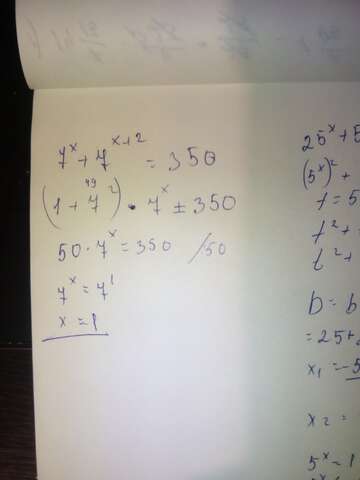 7^x + 7^{x+2} = 350
49
(1 + 7^2) · 7^x = 350
50 · 7^x = 350 /50
7^x = 7^1
x = 1
25^x + 5
(5^x)^2 +
t = 5
t^2 +
t^2 +
D = b
= 25 +
x_1 = -5
x_2 =
5^x = 1